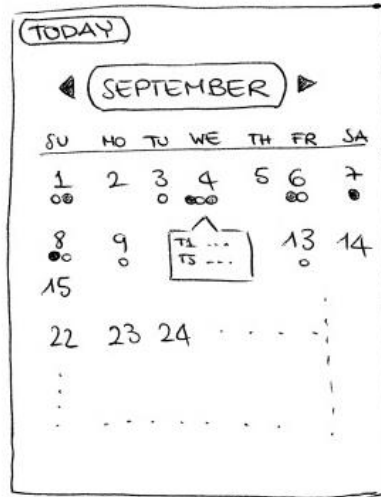 TODAY
SEPTEMBER
SU MO TU WE TH FR SA
1 2 3 4 5 6 7
8 9 13 14
T1 ...
T3 ---
15
22 23 24